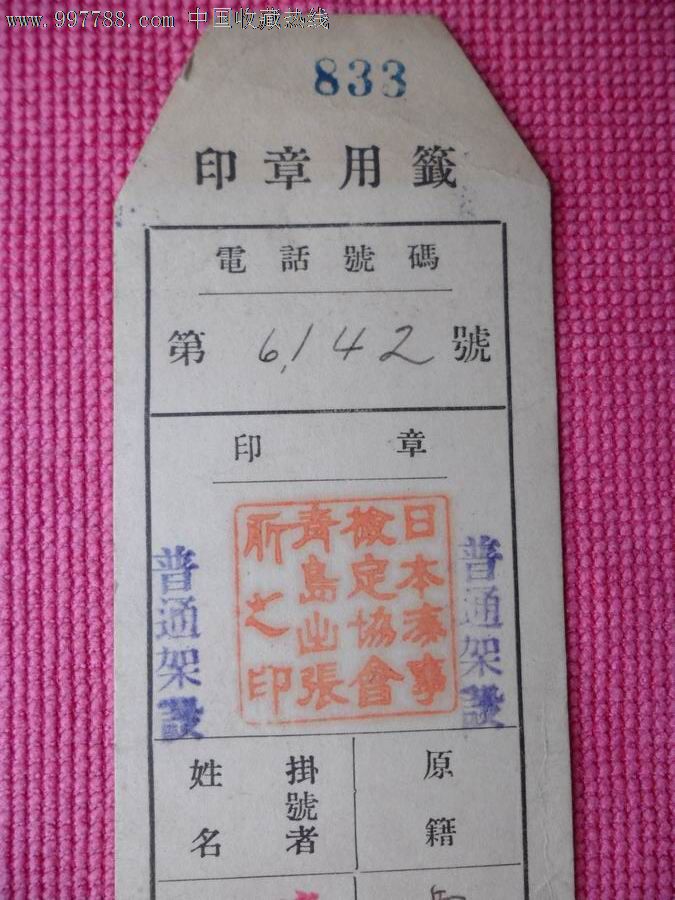 www.997788.com 中国收藏热线
833
印章用籤
電話號碼
第 6142 號
印章
日本海事
檢定協會
青島出張
所之印
普通架設
普通架設
姓名
掛號者
原籍